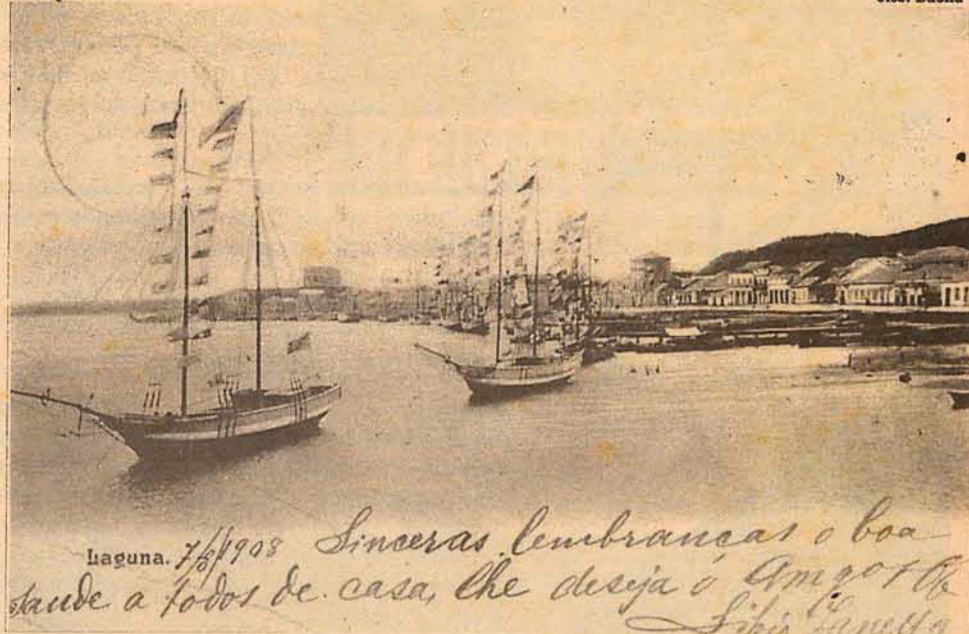 Laguna. 7/8/1908 Sinceras lembranças e boa
saude a todos de casa, lhe deseja o Amigo